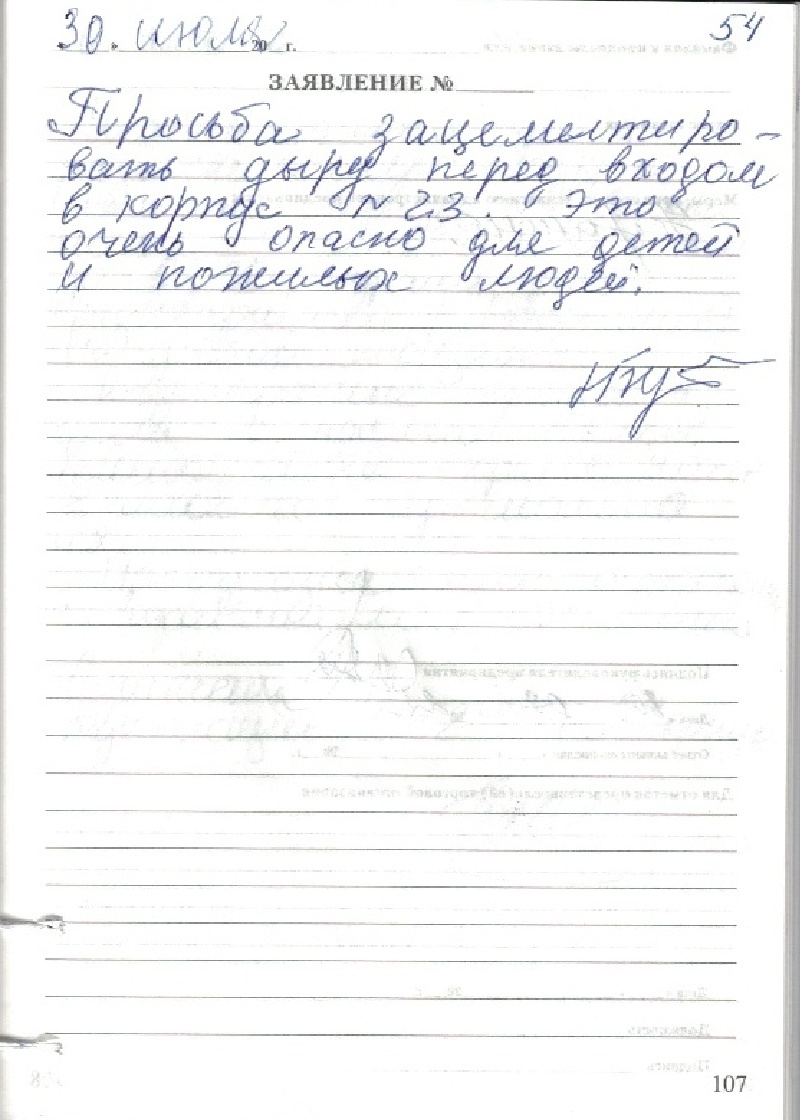 54
"30" июля 20 г.
ЗАЯВЛЕНИЕ №
Просьба зацементиро-
вать дыру перед входом
в корпус №23. Это
очень опасно для детей
и пожилых людей.
107